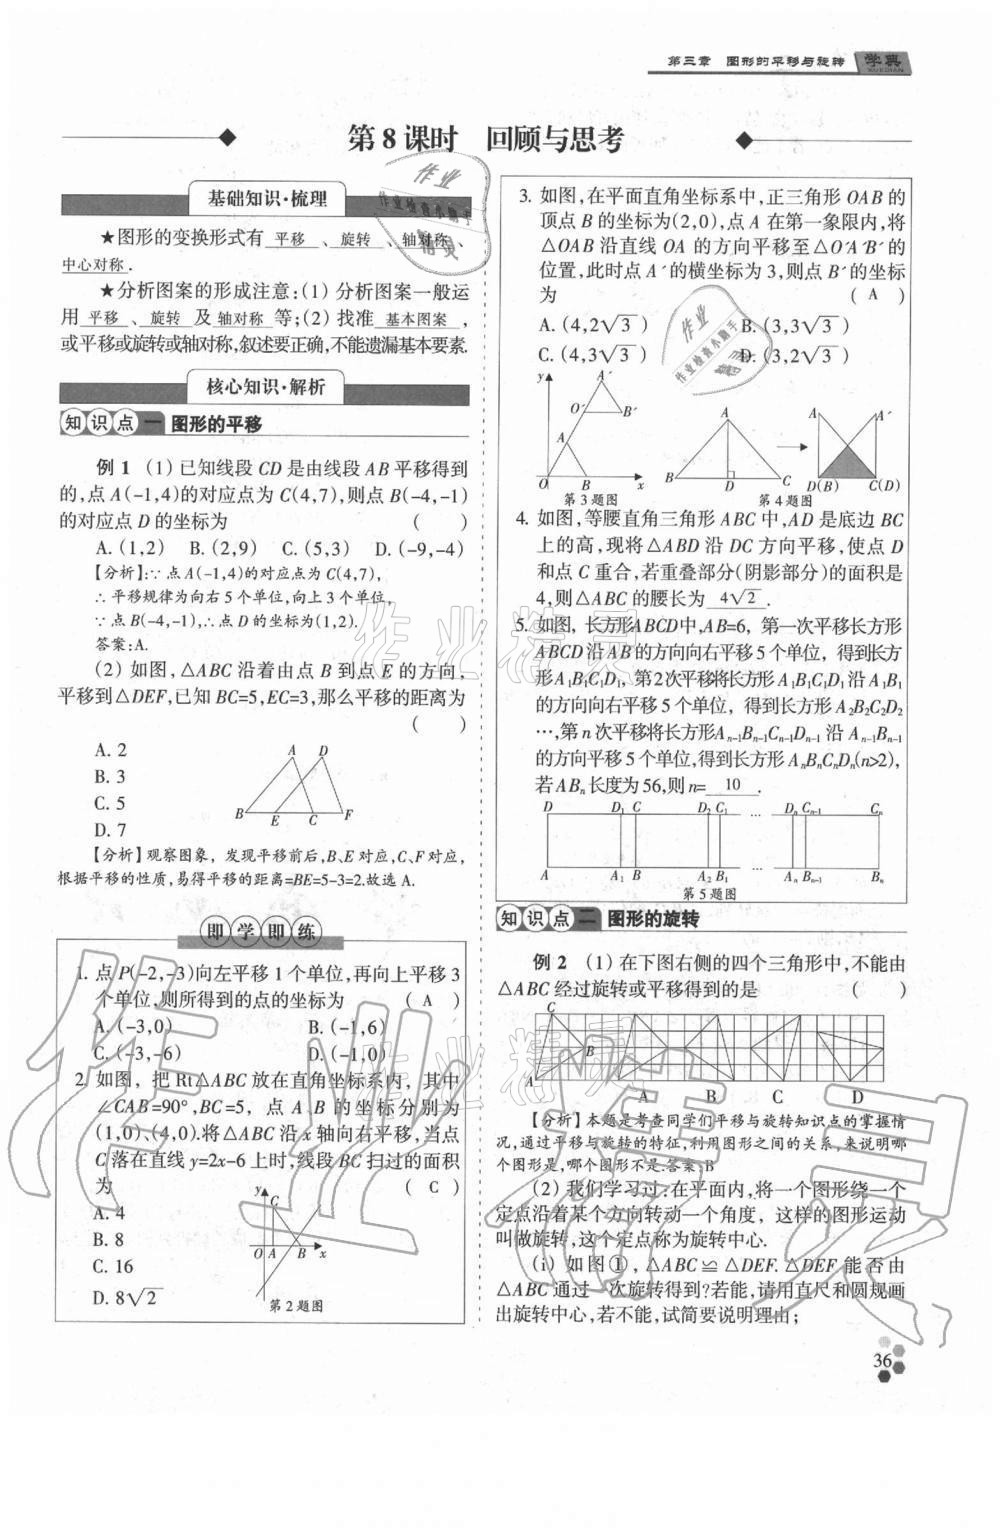 第三章　图形的平移与旋转　学典
XUEDIAN
第 8 课时　回顾与思考
基础知识·梳理
★图形的变换形式有 平移 、 旋转 、 轴对称 、
中心对称 .
★分析图案的形成注意:(1) 分析图案一般运
用 平移 、 旋转 及 轴对称 等;(2) 找准 基本图案 ,
或平移或旋转或轴对称,叙述要正确,不能遗漏基本要素.
核心知识·解析
知识点一 图形的平移
例 1　(1) 已知线段 CD 是由线段 AB 平移得到
的,点 A(-1,4)的对应点为 C(4,7),则点 B(-4,-1)
的对应点 D 的坐标为　(　　)
A. (1,2)　B. (2,9)　C. (5,3)　D. (-9,-4)
【分析】:∵ 点 A(-1,4)的对应点为 C(4,7),
∴ 平移规律为向右 5 个单位,向上 3 个单位,
∵ 点 B(-4,-1),∴ 点 D 的坐标为(1,2).
答案:A.
(2) 如图, △ABC 沿着由点 B 到点 E 的方向,
平移到△DEF,已知 BC=5,EC=3,那么平移的距离为
(　　)
A. 2
B. 3
C. 5
D. 7
A D
B E C F
【分析】观察图象, 发现平移前后,B、E 对应,C、F 对应,
根据平移的性质,易得平移的距离=BE=5-3=2.故选 A.
即学即练
1. 点 P(-2,-3)向左平移 1 个单位,再向上平移 3
个单位,则所得到的点的坐标为　( A )
A. (-3,0)　B. (-1,6)
C. (-3,-6)　D. (-1,0)
2. 如图, 把 Rt△ABC 放在直角坐标系内, 其中
∠CAB=90°,BC=5, 点 A、B 的坐标分别为
(1,0)、(4,0).将△ABC 沿 x 轴向右平移,当点
C 落在直线 y=2x-6 上时,线段 BC 扫过的面积
为　( C )
A. 4
B. 8
C. 16
D. 8√2
y
C
O A B x
第 2 题图
3. 如图,在平面直角坐标系中,正三角形 OAB 的
顶点 B 的坐标为(2,0),点 A 在第一象限内,将
△OAB 沿直线 OA 的方向平移至△O´A´B´的
位置,此时点 A´的横坐标为 3,则点 B´的坐标
为　( A )
A. (4,2√3)　B. (3,3√3)
C. (4,3√3)　D. (3,2√3)
y A´
O´ B´
A
O B x
第 3 题图
A A A´
B D C D(B) C(D)
第 4 题图
4. 如图,等腰直角三角形 ABC 中,AD 是底边 BC
上的高,现将△ABD 沿 DC 方向平移,使点 D
和点 C 重合,若重叠部分(阴影部分)的面积是
4,则△ABC 的腰长为 4√2 .
5. 如图, 长方形ABCD中,AB=6, 第一次平移长方形
ABCD 沿 AB 的方向向右平移 5 个单位, 得到长方
形 A₁B₁C₁D₁, 第2次平移将长方形 A₁B₁C₁D₁ 沿 A₁B₁
的方向向右平移 5 个单位, 得到长方形 A₂B₂C₂D₂
…,第 n 次平移将长方形Aₙ₋₁Bₙ₋₁Cₙ₋₁Dₙ₋₁ 沿 Aₙ₋₁Bₙ₋₁
的方向平移 5 个单位,得到长方形 AₙBₙCₙDₙ(n>2),
若 ABₙ 长度为 56,则 n= 10 .
D D₁ C D₂ C₁ … Dₙ Cₙ₋₁ Cₙ
A A₁ B A₂ B₁ … Aₙ Bₙ₋₁
第 5 题图
知识点二 图形的旋转
例 2　(1) 在下图右侧的四个三角形中,不能由
△ABC 经过旋转或平移得到的是　(　　)
C
B
A
A B C D
【分析】本题是考查同学们平移与旋转知识点的掌握情
况,通过平移与旋转的特征,利用图形之间的关系, 来说明哪
个图形是,哪个图形不是.答案:B
(2) 我们学习过:在平面内,将一个图形绕一个
定点沿着某个方向转动一个角度, 这样的图形运动
叫做旋转,这个定点称为旋转中心.
(i) 如图①, △ABC ≌ △DEF. △DEF 能否由
△ABC 通过一次旋转得到?若能,请用直尺和圆规画
出旋转中心,若不能,试简要说明理由;
36
作业精灵
作业检查小助手